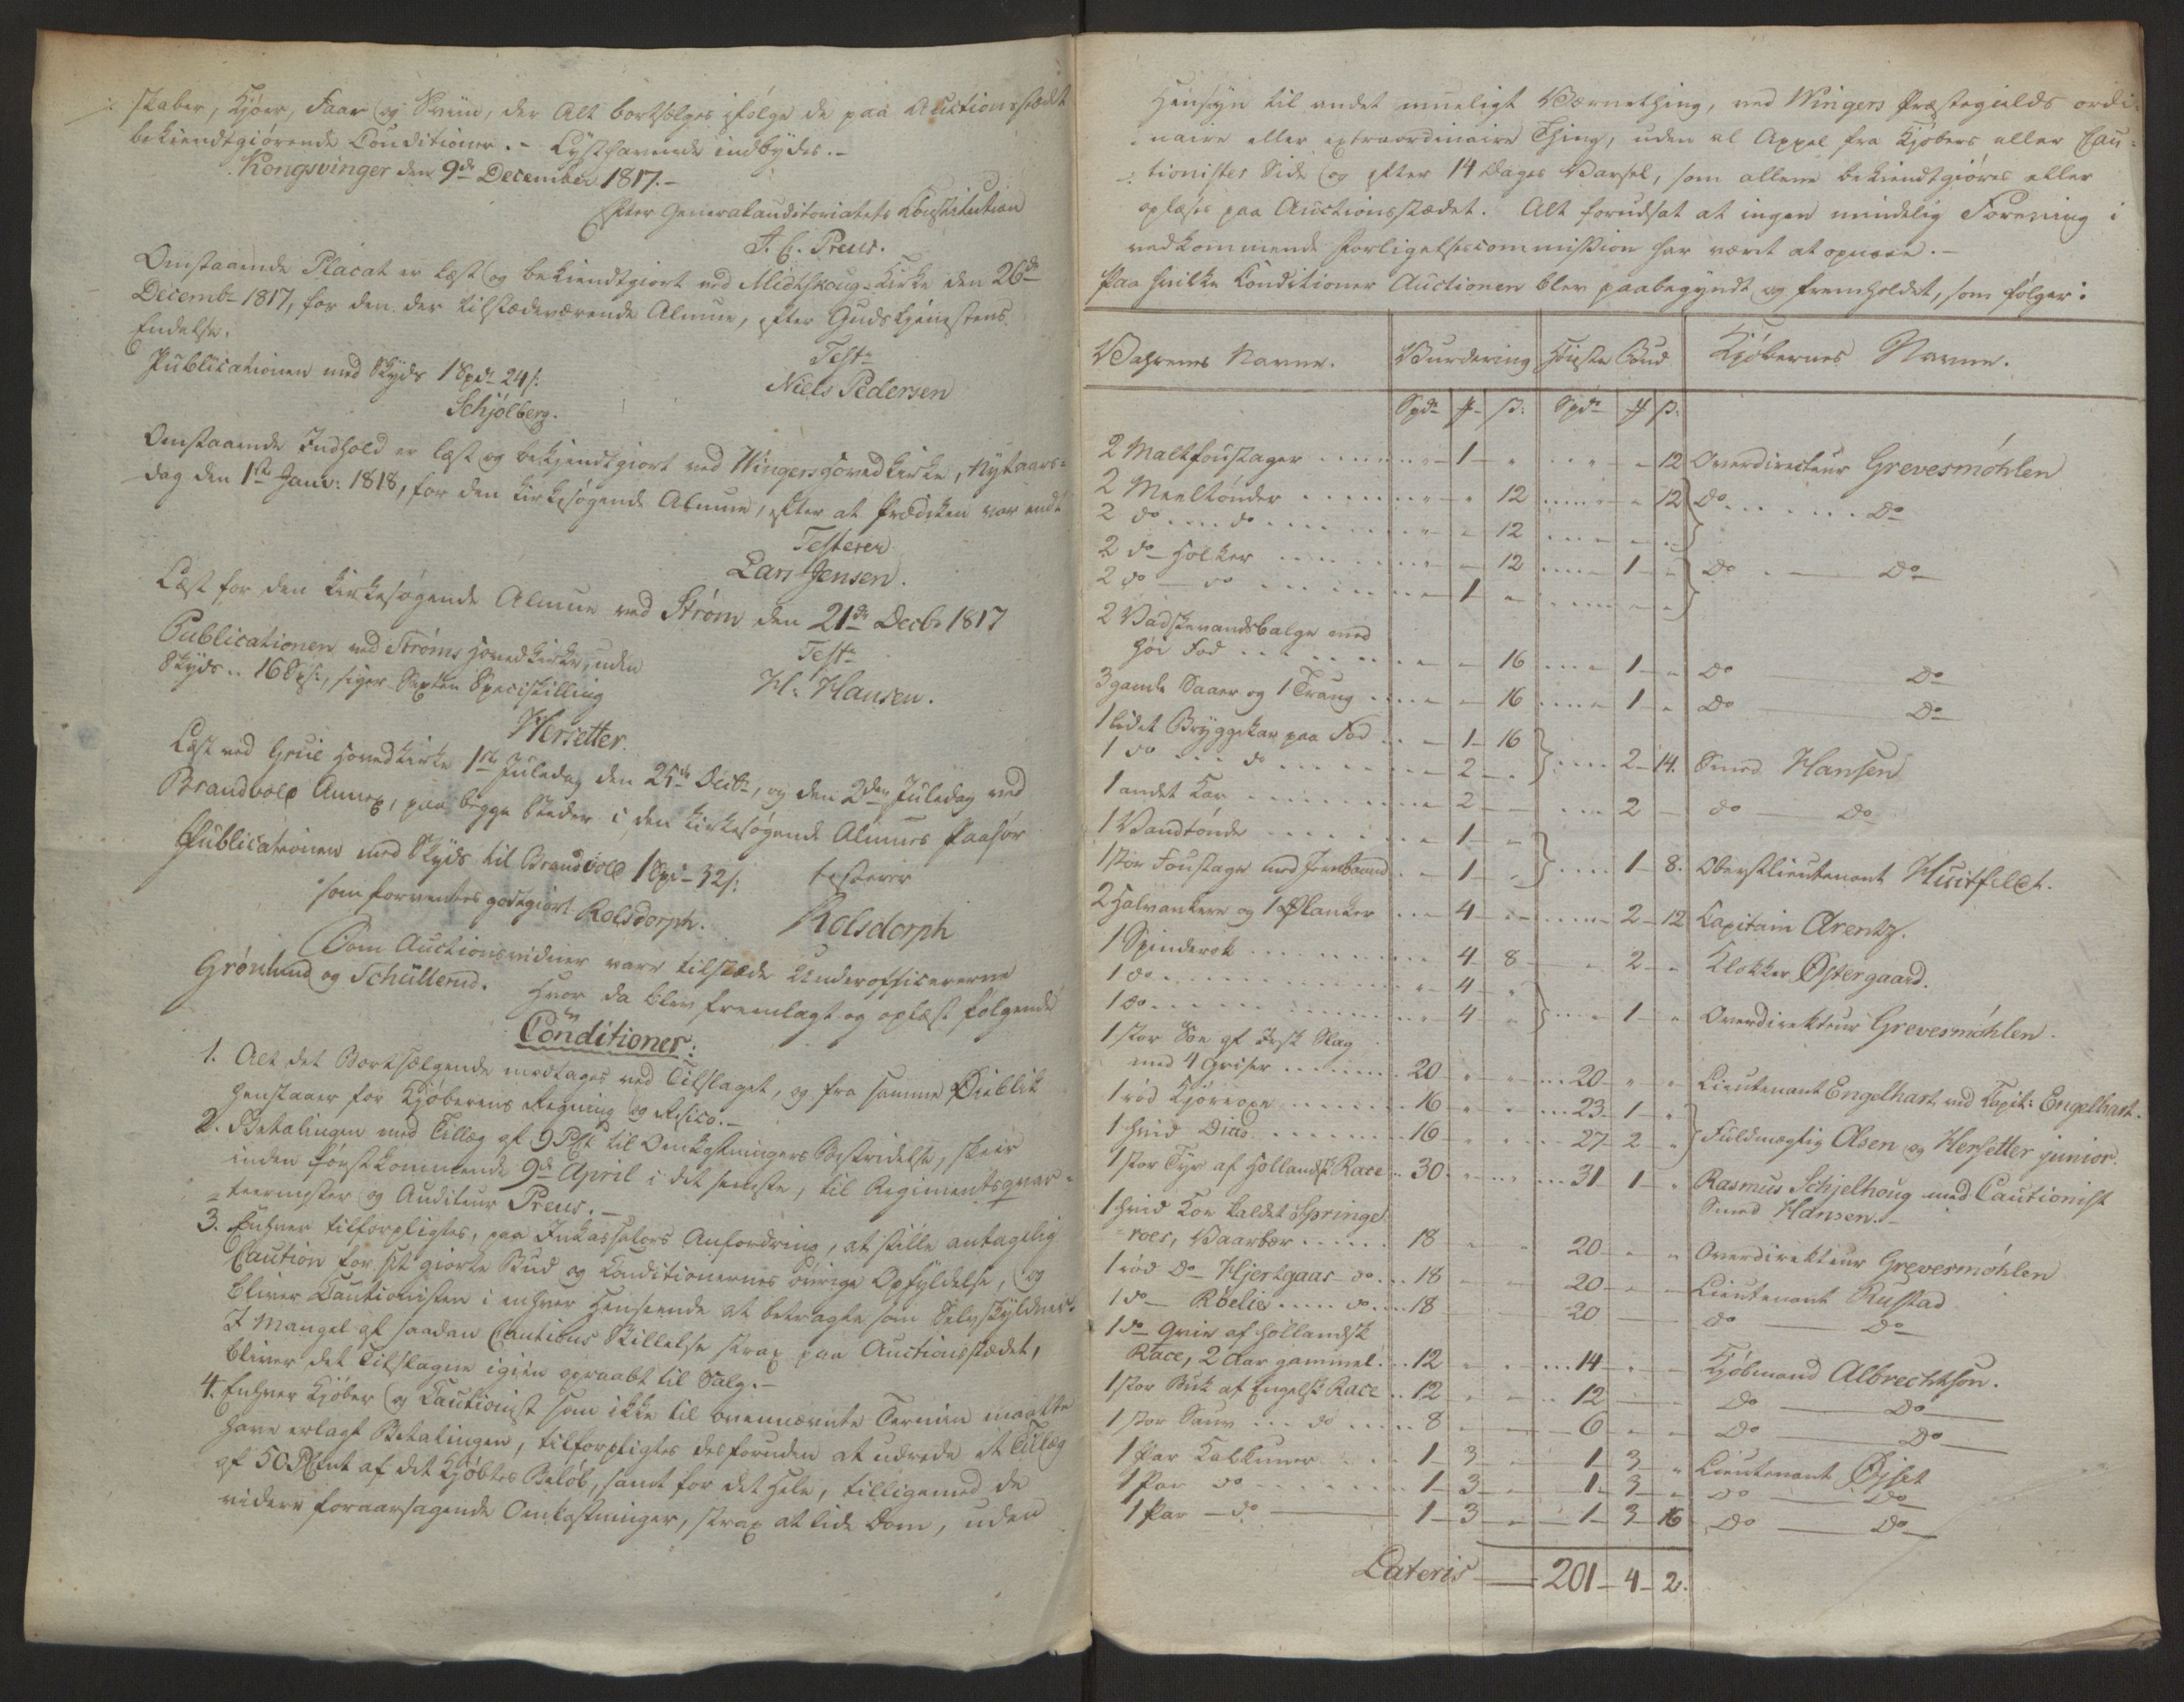 skaber, Kjöer, Faar og Sviin, der Alt bortsælges ifølge de paa Auctionsstædet
bekiendtgiörende Conditioner. - Lysthavende indbydes. -
Kongsvinger den 9de December 1817. -
Efter Generalauditoriatets Constitution
J. C. Preus.
Omstaaende Placat er læst og bekiendtgiort ved Midtskoug-Kirke den 26de
Decembr 1817, for den der tilstædeværende Almue, efter Gudstjenestens
Endelse.
Publicationen med Skyds 1 Spdr 24 s:
Testr
Niels Pedersen
Schjölberg.
Omstaaende Indhold er læst og bekjendtgiort ved Wingers Hovedkirke, Nytaars-
dag den 1ste Janu: 1818, for den kirkesögende Almue, efter at Prædiken var endt
Testerer
Lars Jensen.
Læst for den kirkesögende Almue ved Ström den 21de Decbr 1817
Publicationen ved Ströms Hovedkirke, uden
Skyds .. 16 Sps:, siger Sexten Speciskilling
Testr
H: Hansen.
Hersetter.
Læst ved Grue Hovedkirke 1ste Juledag den 25de Decbr, og den 2den Juledag ved
Brandvold Annex, paa begge Steder i den kirkesögende Almues Paahör
Publicationen med Skyds til Brandvold 1 Spd - 32 s:
testerer
som forventes godtgiort Rolsdorph.
Rolsdorph
Som Auctionsvidner vare tilstæde Underofficererne
Grönlund og Schullerud. Hvor da blev fremlagt og oplæst fölgende
Conditioner:
1. Alt det Bortsælgende modtages ved Tilslaget, og fra samme Öieblik
henstaaer for Kjöberens Regning og Risico. -
2. Betalingen med Tillæg af 9 PCt til Omkostningers Bestridelse, skeer
inden förstkommende 9de April i det seneste, til Regimentsqvar-
teermester og Auditeur Preus. -
3. Enhver tilforpligtes, paa Inkassators Anfordring, at stille antagelig
Caution for sit giorte Bud og Conditionernes övrige Opfyldelse, og
bliver Cautionisten i enhver Henseende at betragte som Selvskyldner.
I Mangel af saadan Cautions Stillelse strax paa Auctionsstædet,
bliver det Tilslagne igien opraabt til Salg. -
4. Enhver Kjöber og Cautionist som ikke til ovennævnte Termin maatte
have erlagt Betalingen, tilforpligtes desforuden at udrede et Tillæg
af 50 PCent af det Kjöbtes Belöb, samt for det Hele, tilligemed de
videre foraarsagende Omkostninger, strax at lide Dom, uden
Hensyn til andet mueligt Værnething, ved Wingers Præstegields ordi-
naire eller extraordinaire Thing, uden al Appel fra Kjöbers eller Cau-
tionistes Side og efter 14 Dages Varsel, som allene bekiendtgiöres eller
oplæses paa Auctionsstædet. Alt forudsat at ingen mindelig Forening i
vedkommende Forligelsescommission har været at opnaae. -
Paa hvilke Conditioner Auctionen blev paabegyndt og fremholdet, som fölger:
Vahrenes Navne. Vurdering Höieste Bud Kjöbernes Navne.
Spdr # s: Spdr # s:
2 Maltfoustager ..... " 1 " ... " " 12 Overdirecteur Grevesmöhlen
2 Meeltönder ..... " " 12 ..... " " 12 } Do ..... Do
2 do .... do ..... " " 12 ... " " "
2 do Holker ..... " " 12 .... 1 " } Do - Do
2 do - do ..... " 1 " ..... " "
2 Vadskevandsbalge med
höi Fod ..... " " 16 ... " 1 " Do - Do
3 gamle Saaer og 1 Traug .... " " 16 .... 1 " Do - Do
1 lidet Bryggekar paa Fod .. - 1 - 16 } .... 2 - 14. Smed Hansen
1 do .... do ..... " 2 - "
1 andet Kar ..... " 2 - - ... 2 - do - Do
1 Vandtönde ..... " 1 - " } .... 1 - 8. Oberstlieutenant Huitfeldt.
1 stor Foustage med Jernbaand .. " 1 - "
2 Halvankere og 1 Planker ... " 4 - " ..... 2 - 12 Capitain Arentz.
1 Spinderok ..... " 4 8 - " 2 - " Klokker Östergaard.
1 do ..... " 4 - " } ... " 1 - " Overdirekteur Grevesmöhlen.
1 do ..... " 4 - "
1 stor Soe af Jysk Slag
med 4 Griser ..... 20 - " - " ... 20 - " - " Lieutenant Engelhart ved Capit: Engelhart.
1 röd Kjöreoxe ..... 16 " " ... 23 1 " } Fuldmægtig Olsen og Hersetter junior.
1 hvid Dito ..... 16 " " ... 27 - 2 - "
1 stor Tyr af Hollandsk Race .. 30 " " ... 31 1 - " Rasmus Schjelhoug med Cautionist
Smed Hansen. -
1 hvid Koe kaldet Springe-
roes, Vaarbær ...... 18 " " 20 " " Overdirekteur Grevesmöhlen
1 röd Do Hjertgaas do ... 18 - - 20 - - Lieutenant Rustad
1 do - Roelie ..... do .... 18 - - 20 - - Do - Do
1 do Qvie af hollandsk
Race, 2 Aar gammel. .. 12 " " ... 14 " " Kjöbmand Albrechtson.
1 stor Buk af Engelsk Race .. 12 " " .. 12 - - Do - Do
1 stor Sauv ... do ..... 8 " - - 6 - - Do - Do
1 Par Kalkuner ... 1 - 3 - " 1 - 3 - " Lieutenant Öjset
1 Par do ..... 1 - 3 - " 1 - 3 - " Do - Do
1 Par - do - 1 - 3 - " - 1 - 3 - 16 Do - Do
Lateris - 201 - 4 - 2.